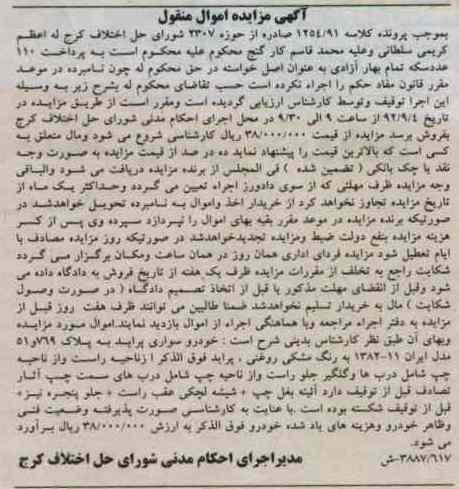 آگهی مزایده اموال منقول
بموجب پرونده کلاسه ۱۲۵۴/۹۱ صادره از حوزه ۲۳۰۷ شورای حل اختلاف کرج له اعظم
کریمی سلطانی وعلیه محمد قاسم کار گنج محکوم علیه محکوم است به پرداخت ۱۱۰
عددسکه تمام بهار آزادی به عنوان اصل خواسته در حق محکوم له چون نامبرده در موعد
مقرر قانون مفاد حکم را اجراء نکرده است حسب تقاضای محکوم له بشرح زیر به وسیله
این اجرا توقیف وتوسط کارشناس ارزیابی گردیده است ومقرر است از طریق مزایده در
تاریخ ۹۲/۹/۴ از ساعت ۹ الی ۹/۳۰ در محل اجرای احکام مدنی شورای حل اختلاف کرج
بفروش برسد مزایده از قیمت ۳۸/۰۰۰/۰۰۰ ریال کارشناسی شروع می شود ومال متعلق به
کسی است که بالاترین قیمت را پیشنهاد نماید ده در صد از قیمت مزایده به صورت وجه
نقد یا چک بانکی ( تضمین شده ) فی المجلس از برنده مزایده دریافت می شود والباقی
وجه مزایده ظرف مهلتی که از سوی دادورز اجراء تعیین می گردد وحداکثر یک ماه از
تاریخ مزایده تجاوز نخواهد کرد از خریدار اخذ واموال به نامبرده تحویل خواهدشد در
صورتیکه برنده مزایده در موعد مقرر بقیه بهای اموال را نپردازد سپرده وی پس از کسر
هزینه مزایده بنفع دولت ضبط ومزایده تجدیدخواهدشد در صورتیکه روز مزایده مصادف با
ایام تعطیل شود مزایده فردای اداری همان روز در همان ساعت ومکان برگزار می گردد
شکایت راجع به تخلف از مقررات مزایده ظرف یک هفته از تاریخ فروش به دادگاه داده می
شود وقبل از انقضای مهلت مذکور یا قبل از اتخاذ تصمیم دادگاه ( در صورت وصول
شکایت ) مال به خریدار تسلیم نخواهدشد ضمنا طالبین می توانند ظرف هفت روز قبل از
مزایده به دفتر اجراء مراجعه وبا هماهنگی اجراء از اموال بازدید نمایند.اموال مورد مزایده
وبهای آن طبق نظر کارشناس بدینی شرح است : خودرو سواری پراید به پلاک ۷۶۹و۵۱
مدل ایران ۱۱-۱۳۸۲ به رنگ مشکی روغنی ، پراید فوق الذکر از ناحیه راست واز ناحیه
چپ شامل درب ها وگلگیر جلو راست واز ناحیه چپ شامل درب های سمت چپ آثار
تصادف قبل از توقیف دارد آئینه بغل چپ + شیشه لچکی عقب راست + جلو پنجره نیز +
قبل از توقیف شکسته بوده است .با عنایت به کارشناسی صورت پذیرفته وضعیت فنی
وظاهر خودرو وهزینه های یاد شده خودرو فوق الذکر به ارزش ۳۸/۰۰۰/۰۰۰ ریال برآورد
می شود.
۳۸۸۷/۶۱۷-ش
مدیراجرای احکام مدنی شورای حل اختلاف کرج